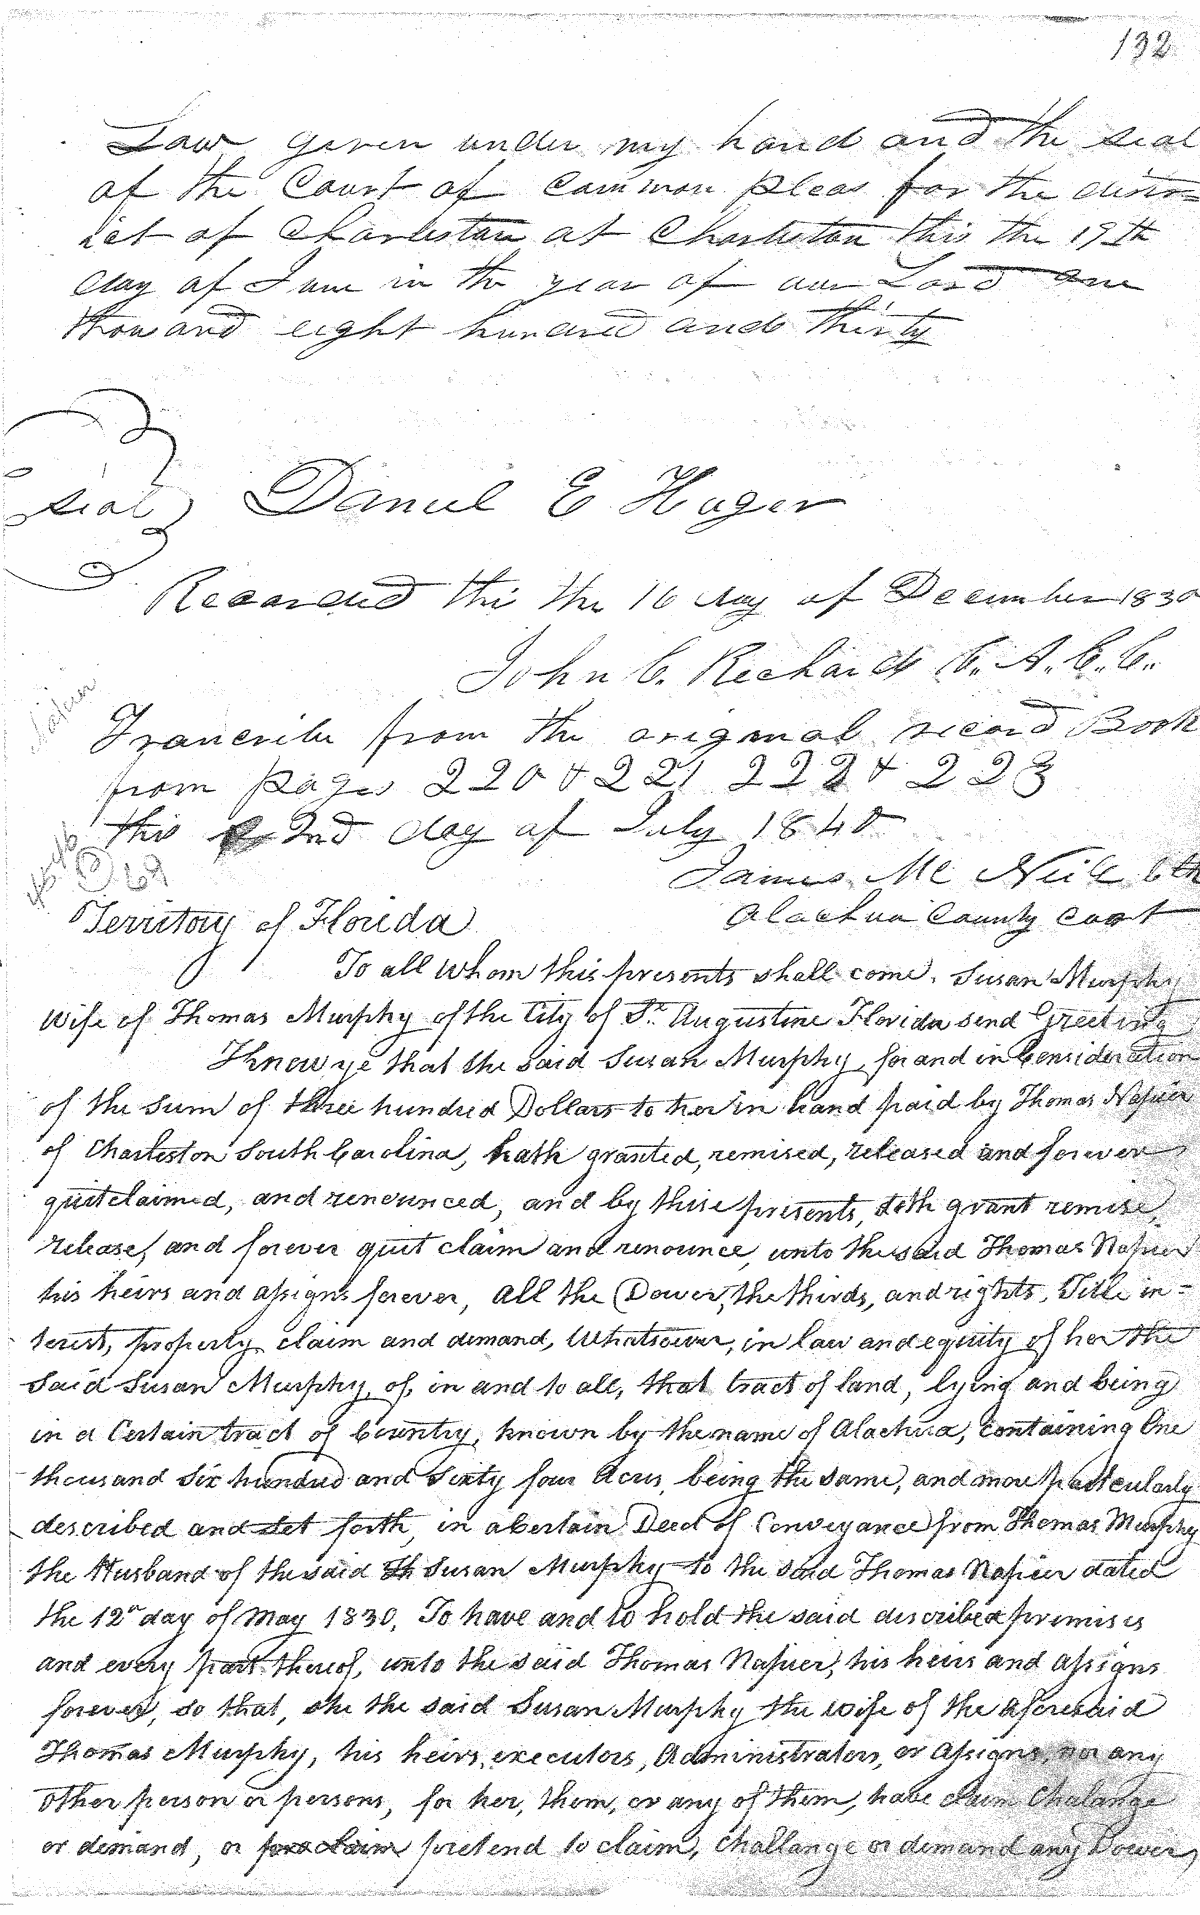 132
Law given under my hand and the seal
of the Court of Common pleas for the distr=
ict of Charleston at Charleston this the 19th
day of June in the year of our Lord one
thousand eight hundred and thirty
seal Daniel E Huger
Recorded this the 16 day of December 1830
John C. Richards C. A. C. C.
Napier
Trancribe from the original record Book
from pages 220 & 221 222 & 223
this 2nd day of July 1840
James Mc Neill Clk
69
Alachua County Court
Territory of Florida
To all whom this presents shall come, Susan Murphy
wife of Thomas Murphy of the City of St. Augustine Florida send Greeting
Know ye that the said Susan Murphy, for and in Consideration
of the sum of three hundred Dollars to her in hand paid by Thomas Napier
of Charleston South Carolina, hath granted, remised, released and forever
quitclaimed, and renounced, and by these presents, doth grant remise,
release, and forever quit claim and renounce, unto the said Thomas Napier
his heirs and assigns forever, all the Dower, the thirds, and rights, Title in=
terest, property, claim and demand, Whatsoever, in law and equity of her the
said Susan Murphy, of, in and to all, that tract of land, lying and being
in a Certain tract of Country, known by the name of Alachua, containing One
thousand six hundred and sixty four Acres, being the same, and more particularly
described and set forth, in a Certain Deed of Conveyance from Thomas Murphy
the Husband of the said Th Susan Murphy to the said Thomas Napier dated
the 12th day of May 1830, To have and to hold the said described premises
and every part thereof, unto the said Thomas Napier, his heirs and assigns
forever, so that, she the said Susan Murphy the wife of the aforesaid
Thomas Murphy, his heirs, executors, Administrators, or Assigns, nor any
other person or persons, for her, them, or any of them, have claim Chalange
or demand, or pretend to claim, challange or demand any Dower,